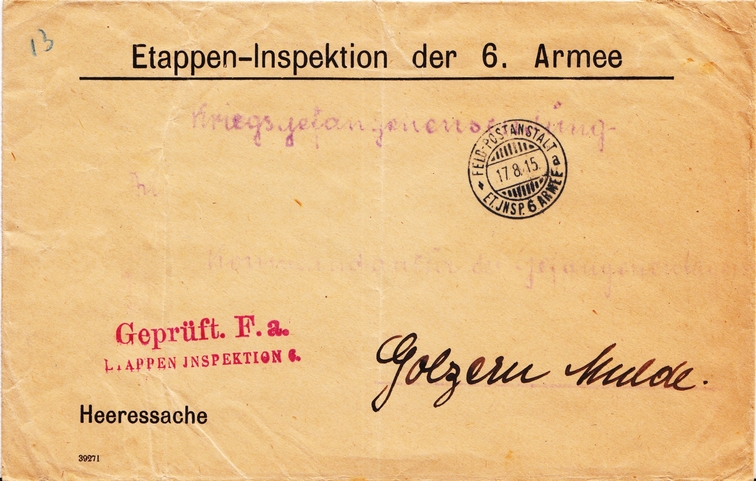 13
Etappen-Inspektion der 6. Armee
Kriegsgefangenensendung
FELD-POSTANSTALT a
17.8.15.
ET. JNSP. 6 ARMEE
An
Kommandantur des Gefangenenlagers
Geprüft. F. a.
ETAPPEN JNSPEKTION 6.
Golzern Mulde.
Heeressache
39271